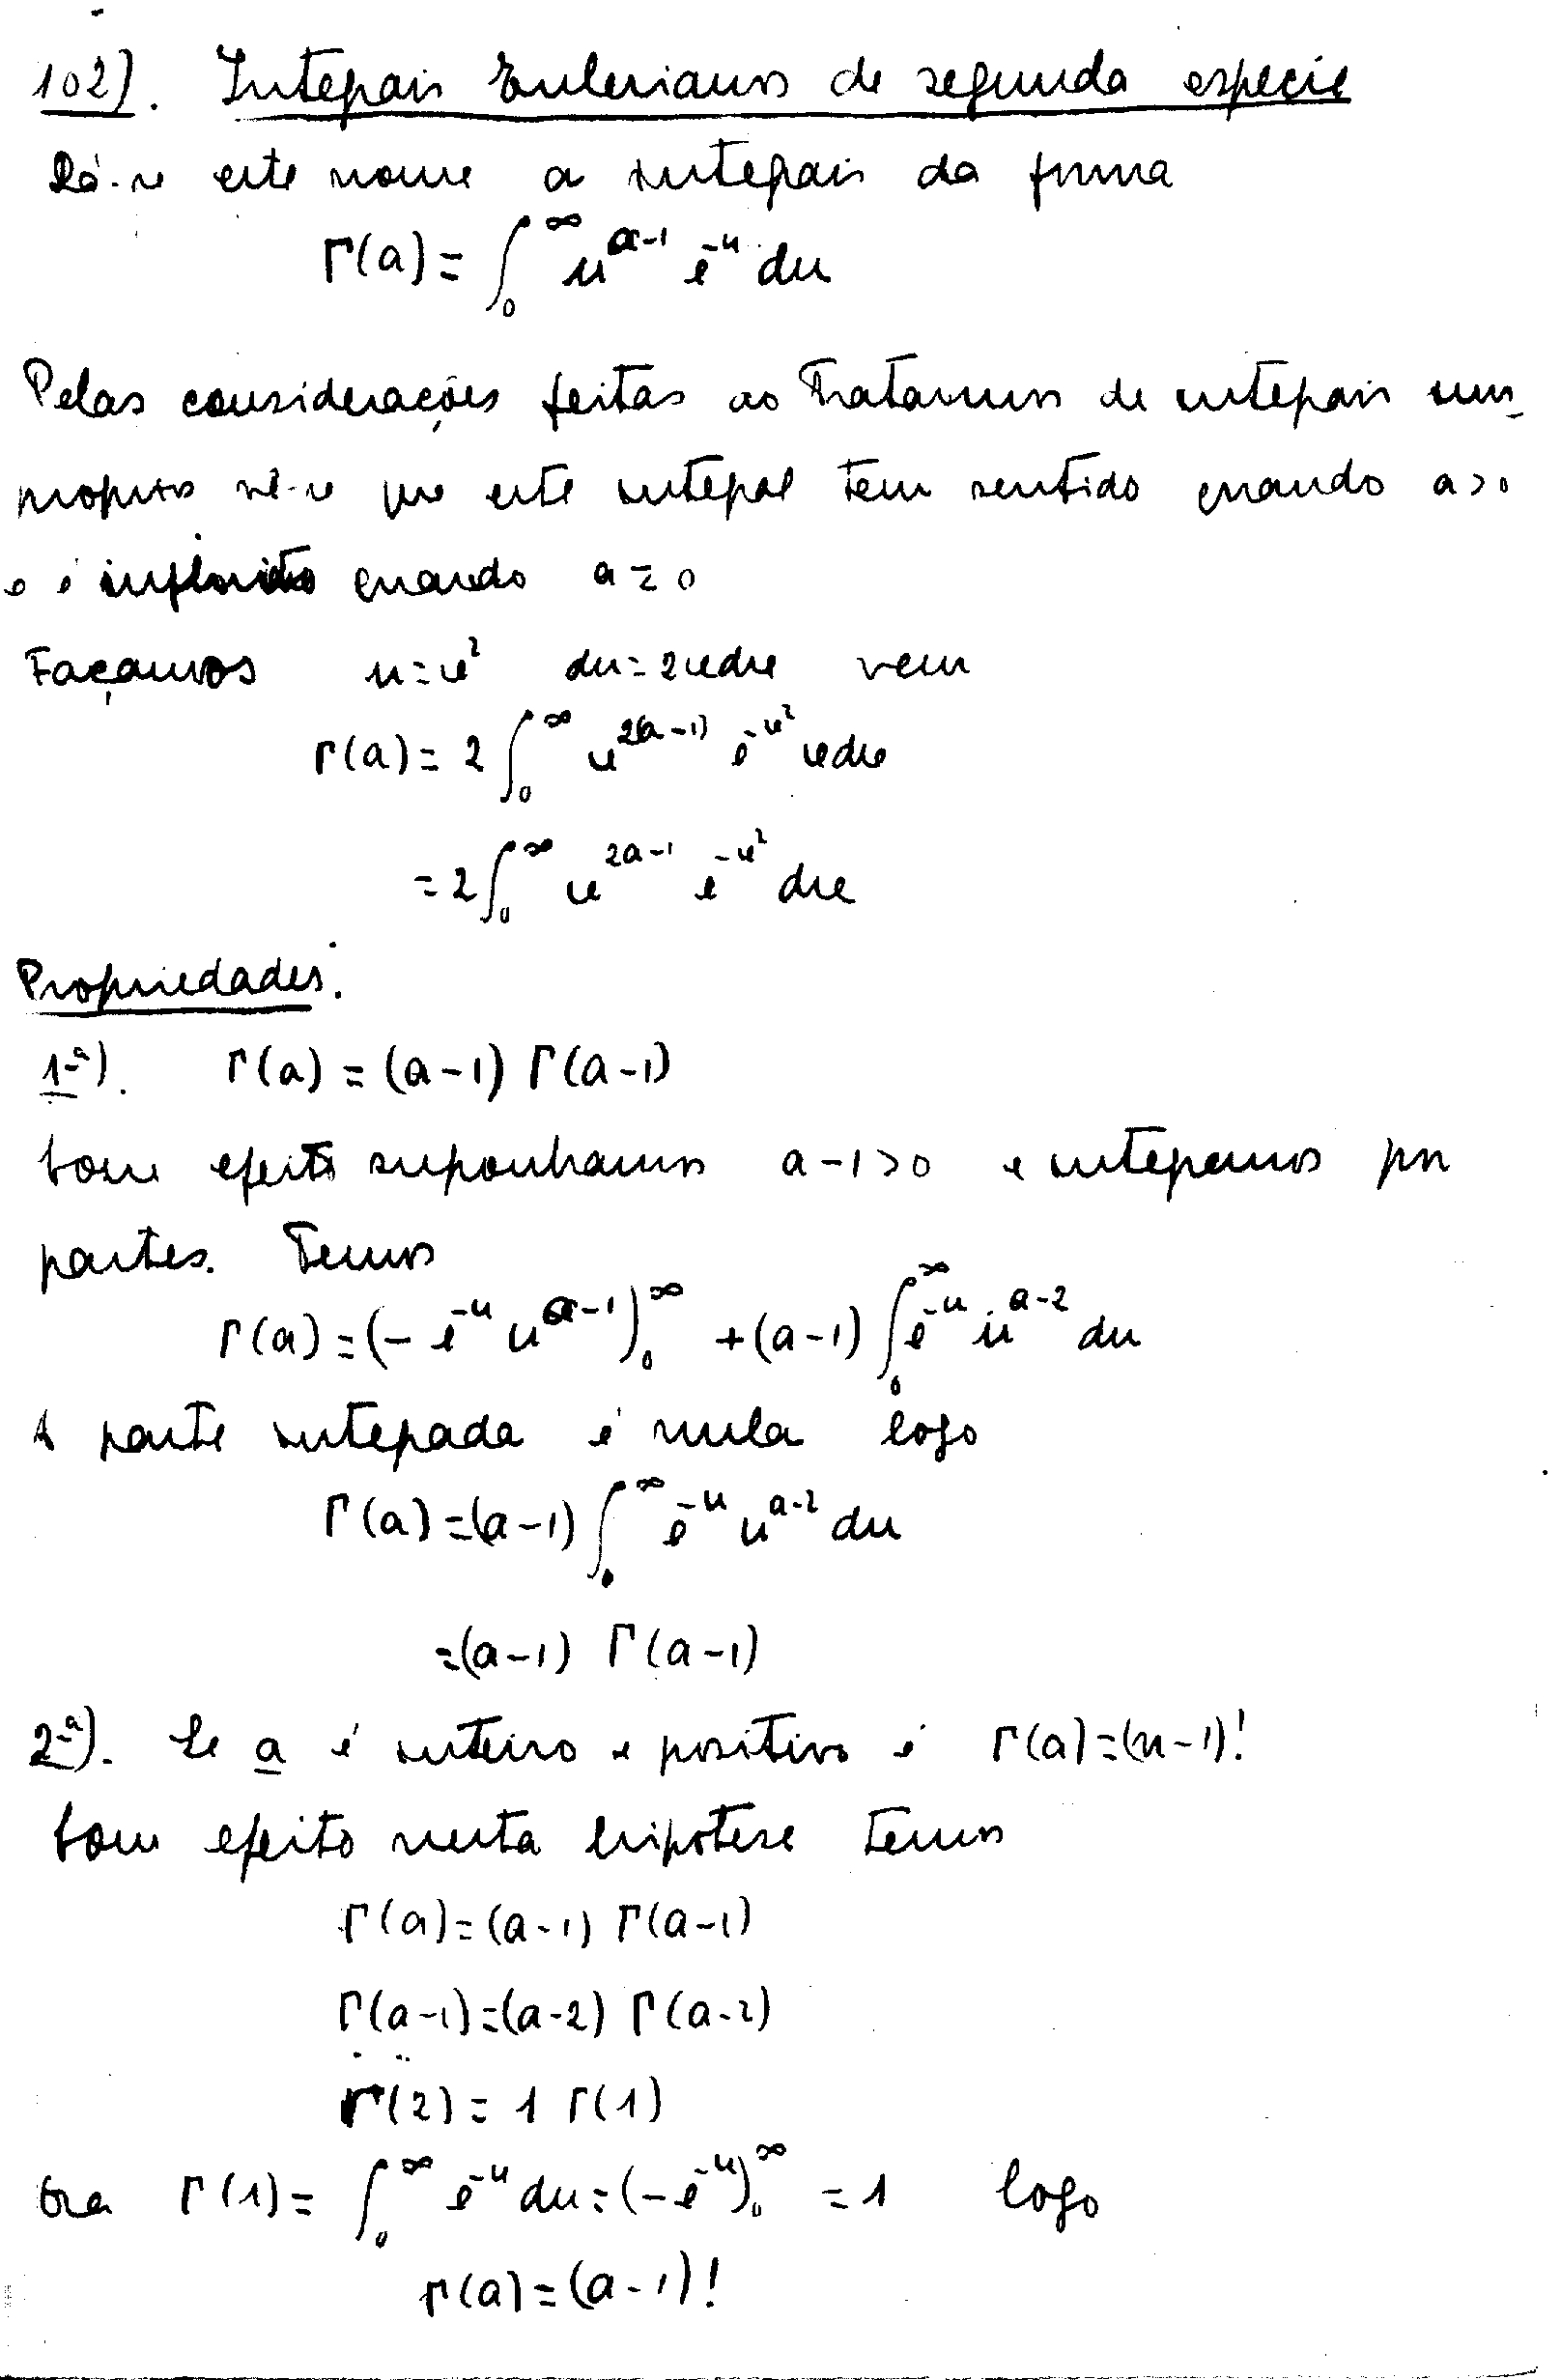 102). Integrais Eulerianos de segunda especie
Dá-se este nome a integrais da forma
Γ(a) = ∫₀^∞ u^{a-1} e^{-u} du
Pelas considerações feitas ao tratarmos de integrais im-
proprios vê-se que este integral tem sentido quando a>0
e é infinito quando a = 0
Façamos u = v² du = 2vdv vem
Γ(a) = 2 ∫₀^∞ v^{2(a-1)} e^{-v²} vdv
= 2 ∫₀^∞ v^{2a-1} e^{-v²} dv
Propriedades.
1ª). Γ(a) = (a-1) Γ(a-1)
Com efeito suponhamos a-1>0 e integremos por
partes. Temos
Γ(a) = (- e^{-u} u^{a-1})₀^∞ + (a-1) ∫₀^∞ e^{-u} u^{a-2} du
A parte integrada é nula logo
Γ(a) = (a-1) ∫₀^∞ e^{-u} u^{a-2} du
= (a-1) Γ(a-1)
2ª). Se a é inteiro e positivo é Γ(a) = (n-1)!
Com efeito nesta hipotese temos
Γ(a) = (a-1) Γ(a-1)
Γ(a-1) = (a-2) Γ(a-2)
. ..
Γ(2) = 1 Γ(1)
Ora Γ(1) = ∫₀^∞ e^{-u} du = (-e^{-u})₀^∞ = 1 logo
Γ(a) = (a-1)!